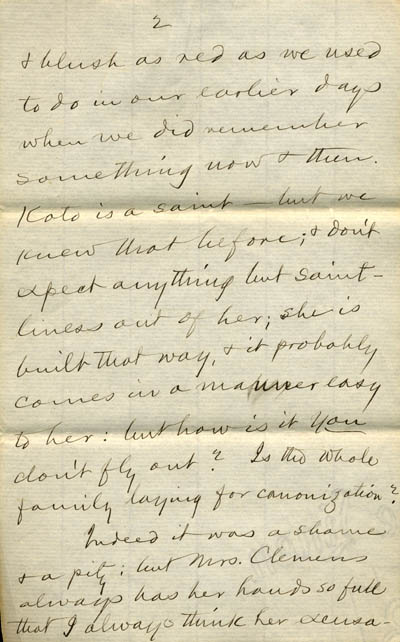 2
& blush as red as we used
to do in our earlier days
when we did remember
something now & then.
Kate is a saint — but we
knew that before; & don't
expect anything but saint-
liness out of her; she is
built that way, & it probably
comes in a manner easy
to her: but how is it you
don't fly out? Is the whole
family laying for canonization?
Indeed it was a shame
& a pity; but Mrs. Clemens
always has her hands so full
that I always think her excusa-